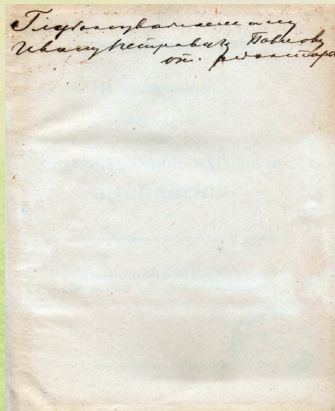 Глубокоуважаемому
Ивану Петровичу Павлову
от редактора